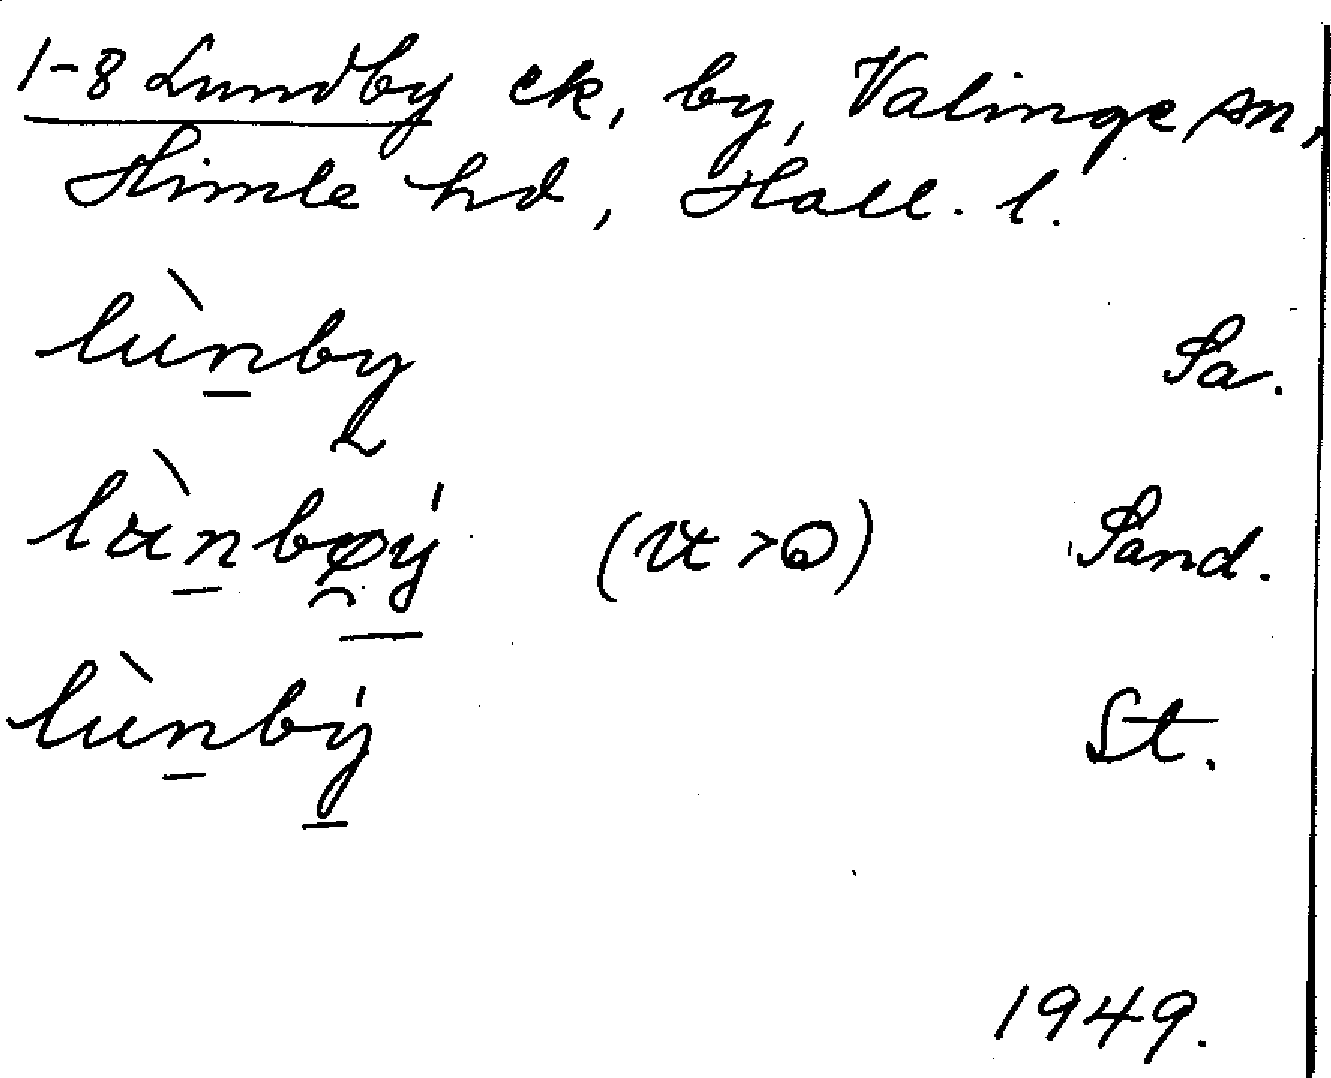 1-8 Lundby ek, by, Valinge sn,
Himle hd, Hall. l.
lùnby Sa.
lùnbøý (u > o) Sand.
lùnbý St.
1949.